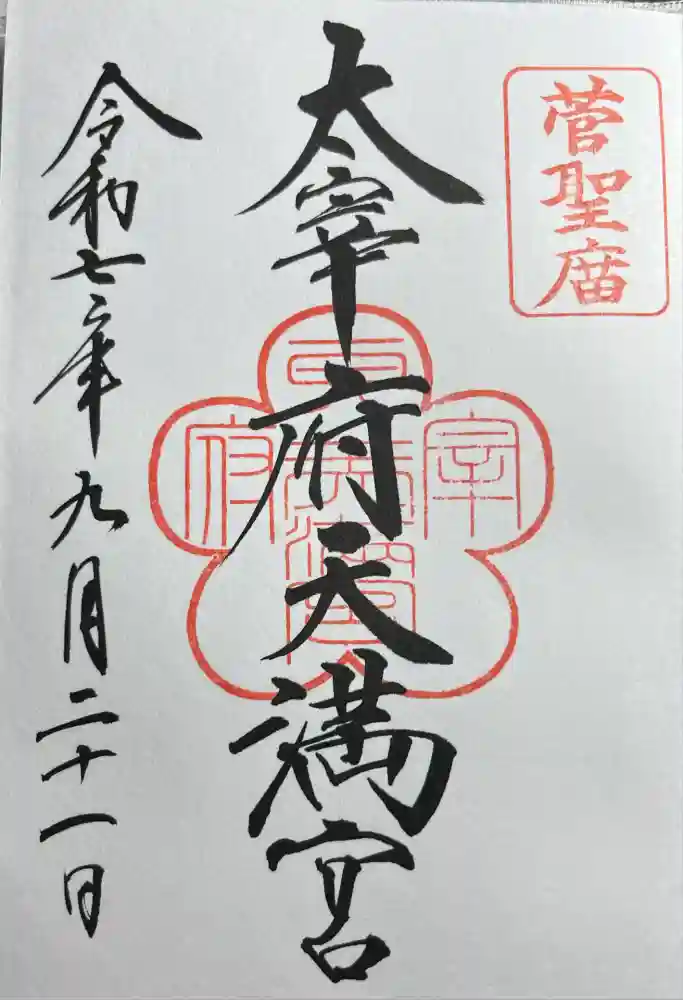 菅聖庿
太宰府天満宮
令和七年九月二十一日